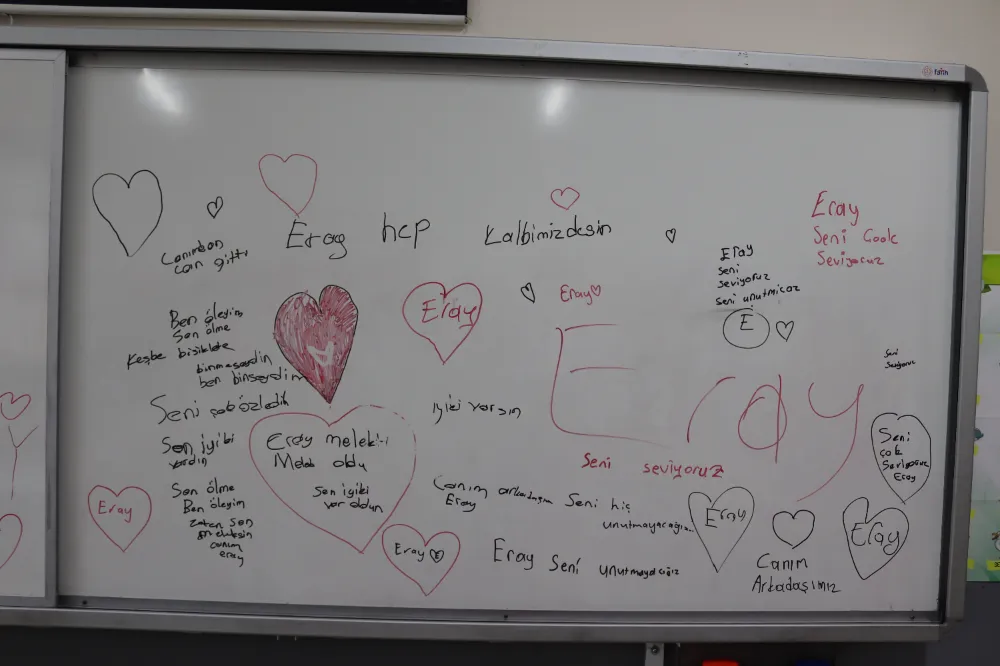 Eray hep Kalbimizdesin
Canımdan
can gitti
Eray
Seni Çook
Seviyoruz
Eray
seni
seviyoruz
seni unutmicaz
E
Eray
Eray
Eray
Ben öleyim
Sen ölme
Keşke bisiklete
binmeseydin
ben binseydim
Seni çok özledik
iyiki varsın
Seni
Seviyoruz
Sen iyiki
vardın
Eray
Melek oldu
Sen iyiki
var oldun
Seni seviyoruz
Seni
çok
Seviyoruz
Eray
Sen ölme
Ben öleyim
zaten sen
canım
eray
Eray
Canım arkadaşım Seni hiç
Eray
unutmayacağım
Eray
Eray
Eray E
Eray Seni unutmayacağız
Canım
Arkadaşımız
fatih